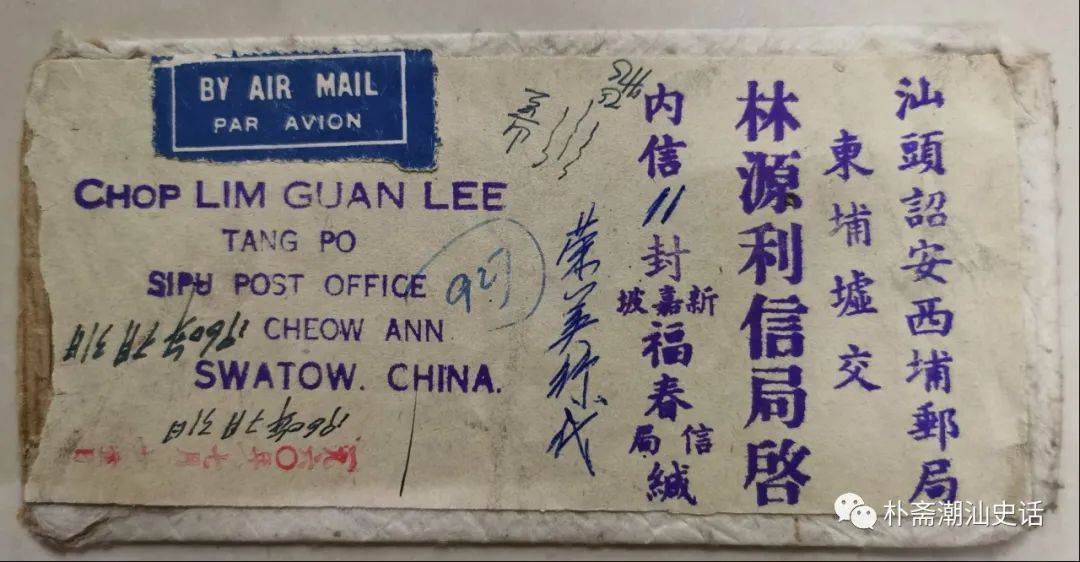 BY AIR MAIL
PAR AVION
CHOP LIM GUAN LEE
TANG PO
SIPU POST OFFICE
CHEOW ANN
SWATOW. CHINA.
1960年7月31日
1960年7月31日
一九六〇年七月
汕頭詔安西埔郵局
東埔墟交
林源利信局啓
内信11封
新嘉坡
福春
信局
緘
朴斋潮汕史话